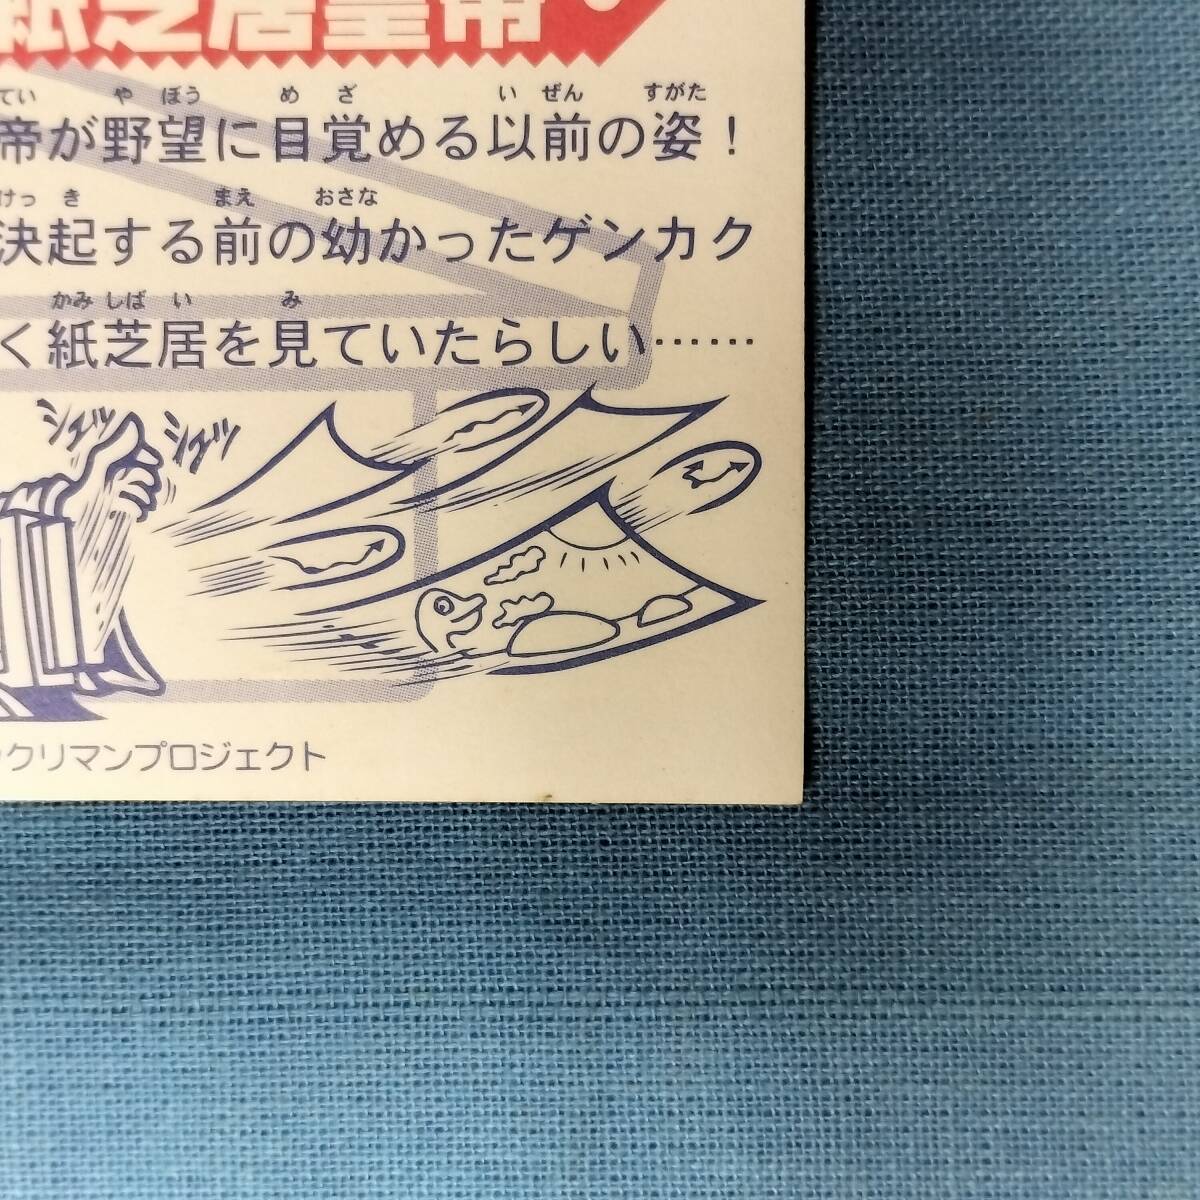 紙芝居皇帝
てい や ぼう め ざ い ぜん すがた
帝が野望に目覚める以前の姿！
けっ き まえ おさな
決起する前の幼かったゲンカク
かみ しば い み
く紙芝居を見ていたらしい……
シュッ シュッ
クリマンプロジェクト